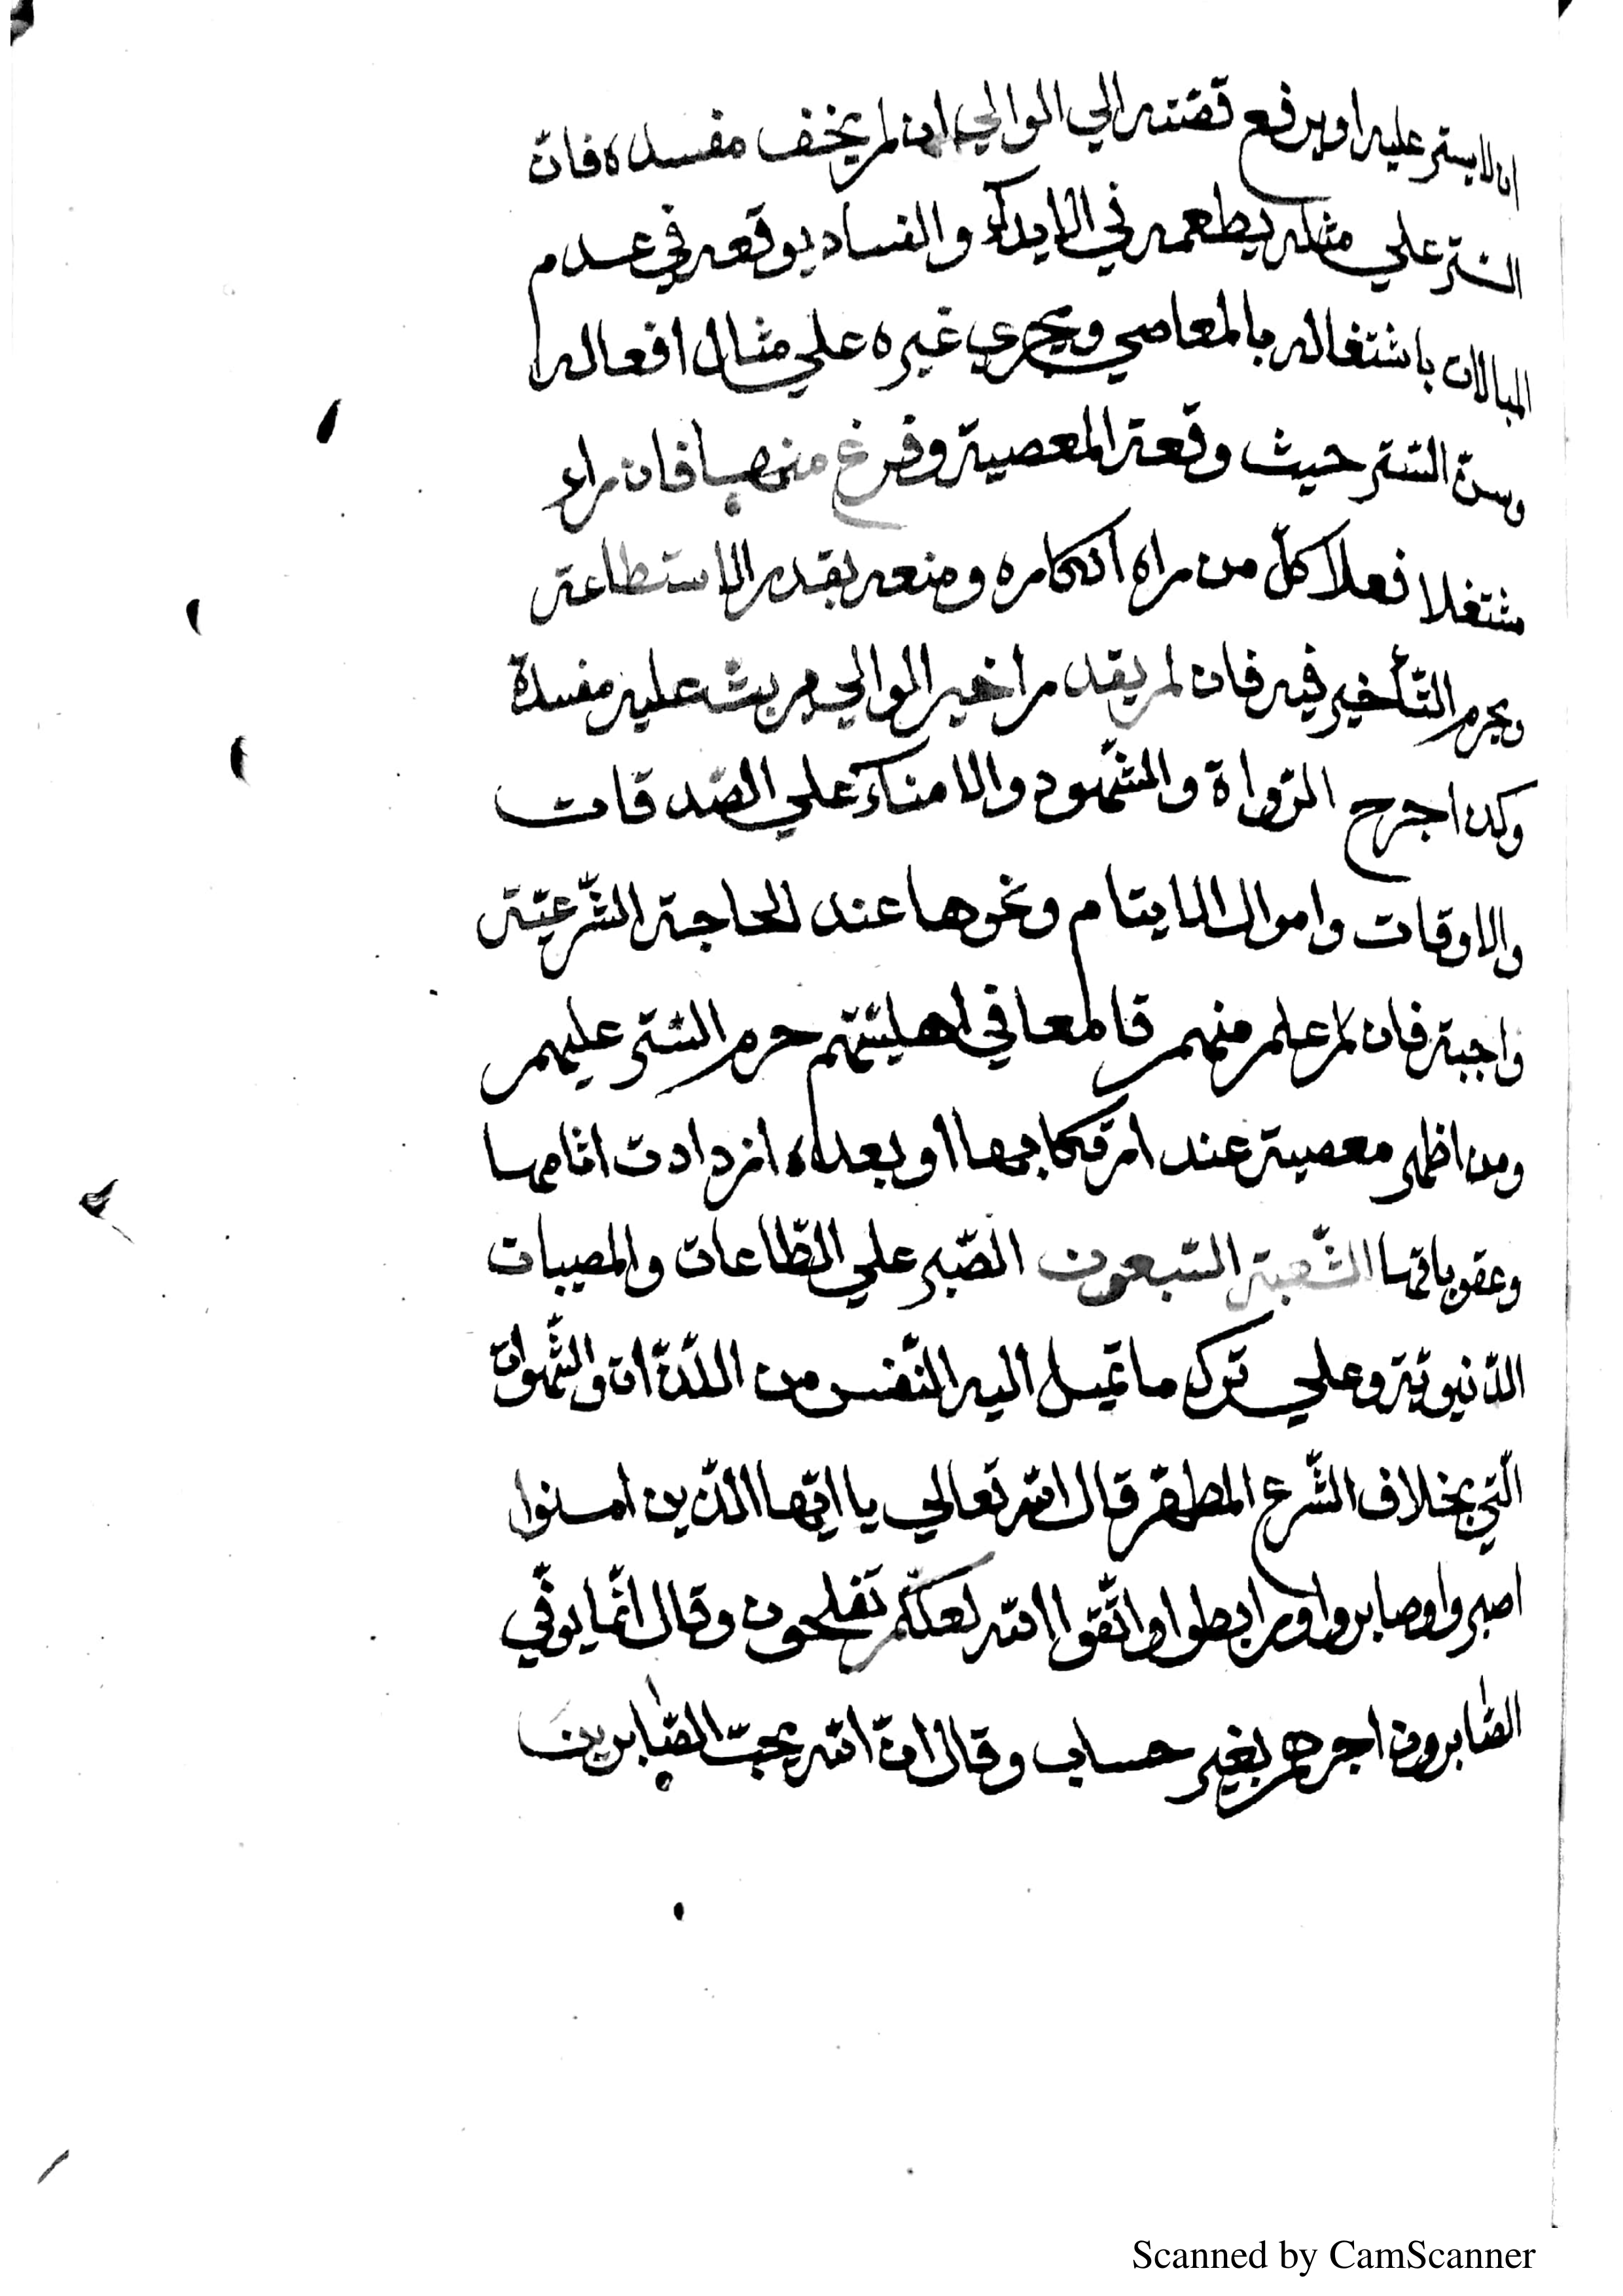 ان لا يستر عليه او يرفع قصّته الي الوالي ان لم يخف مفسده فانّ
السّتر علي مثله يطعمه في الايذاء والفساد يوقعه في عدم
المبالات باشتغاله بالمعاصي ويجري غيره علي مثال افعاله
وسنّ السّتر حيث وقعة المعصية وفرغ منها فان راء
مشتغلا فعلا كلّ من راه انكاره ومنعه بقدر الاستطاعة
ويحرم التّأخير فيه فان لم يقدر اخبر الوالي عليه مفسدة
وكذا جرح الرّواة والشّهود والامناء علي الصّدقات
والاوقات واموال الايتام ونحوها عند الحاجة الشّرعيّة
واجبة فان علم منهم قالمعا في اهليّتهم حرم السّتر عليهم
ومن اظهر معصية عند ارتكابها او بعده ازدادت اثامها
وعقوباتها الشّعبة السّبعون الصّبر علي الطّاعات والمصيبات
الدّنيويّة وعلي ترك ما تميل اليه النّفس من اللّذّات والشّهوات
الّتي بخلاف الشّرع المطهّر قال الله تعالي يا ايّها الّذين امنوا
اصبروا وصابروا ورابطوا واتّقوا الله لعلّكم تفلحون وقال انّما يوفّي
الصّابرون اجرهم بغير حساب وقال انّ الله يحبّ الصّابرين
Scanned by CamScanner